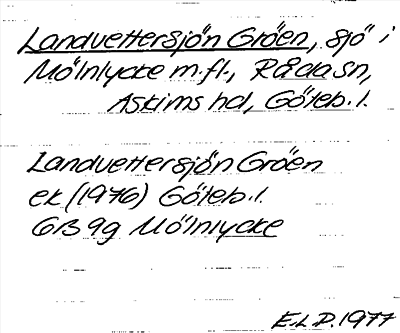 Landvettersjön Gröen, sjö i
Mölnlycke m.fl., Råda sn,
Askims hd, Göteb. l.
Landvettersjön Gröen
ek (1976) Göteb. l.
6B 9g Mölnlycke
E.L.D. 1977